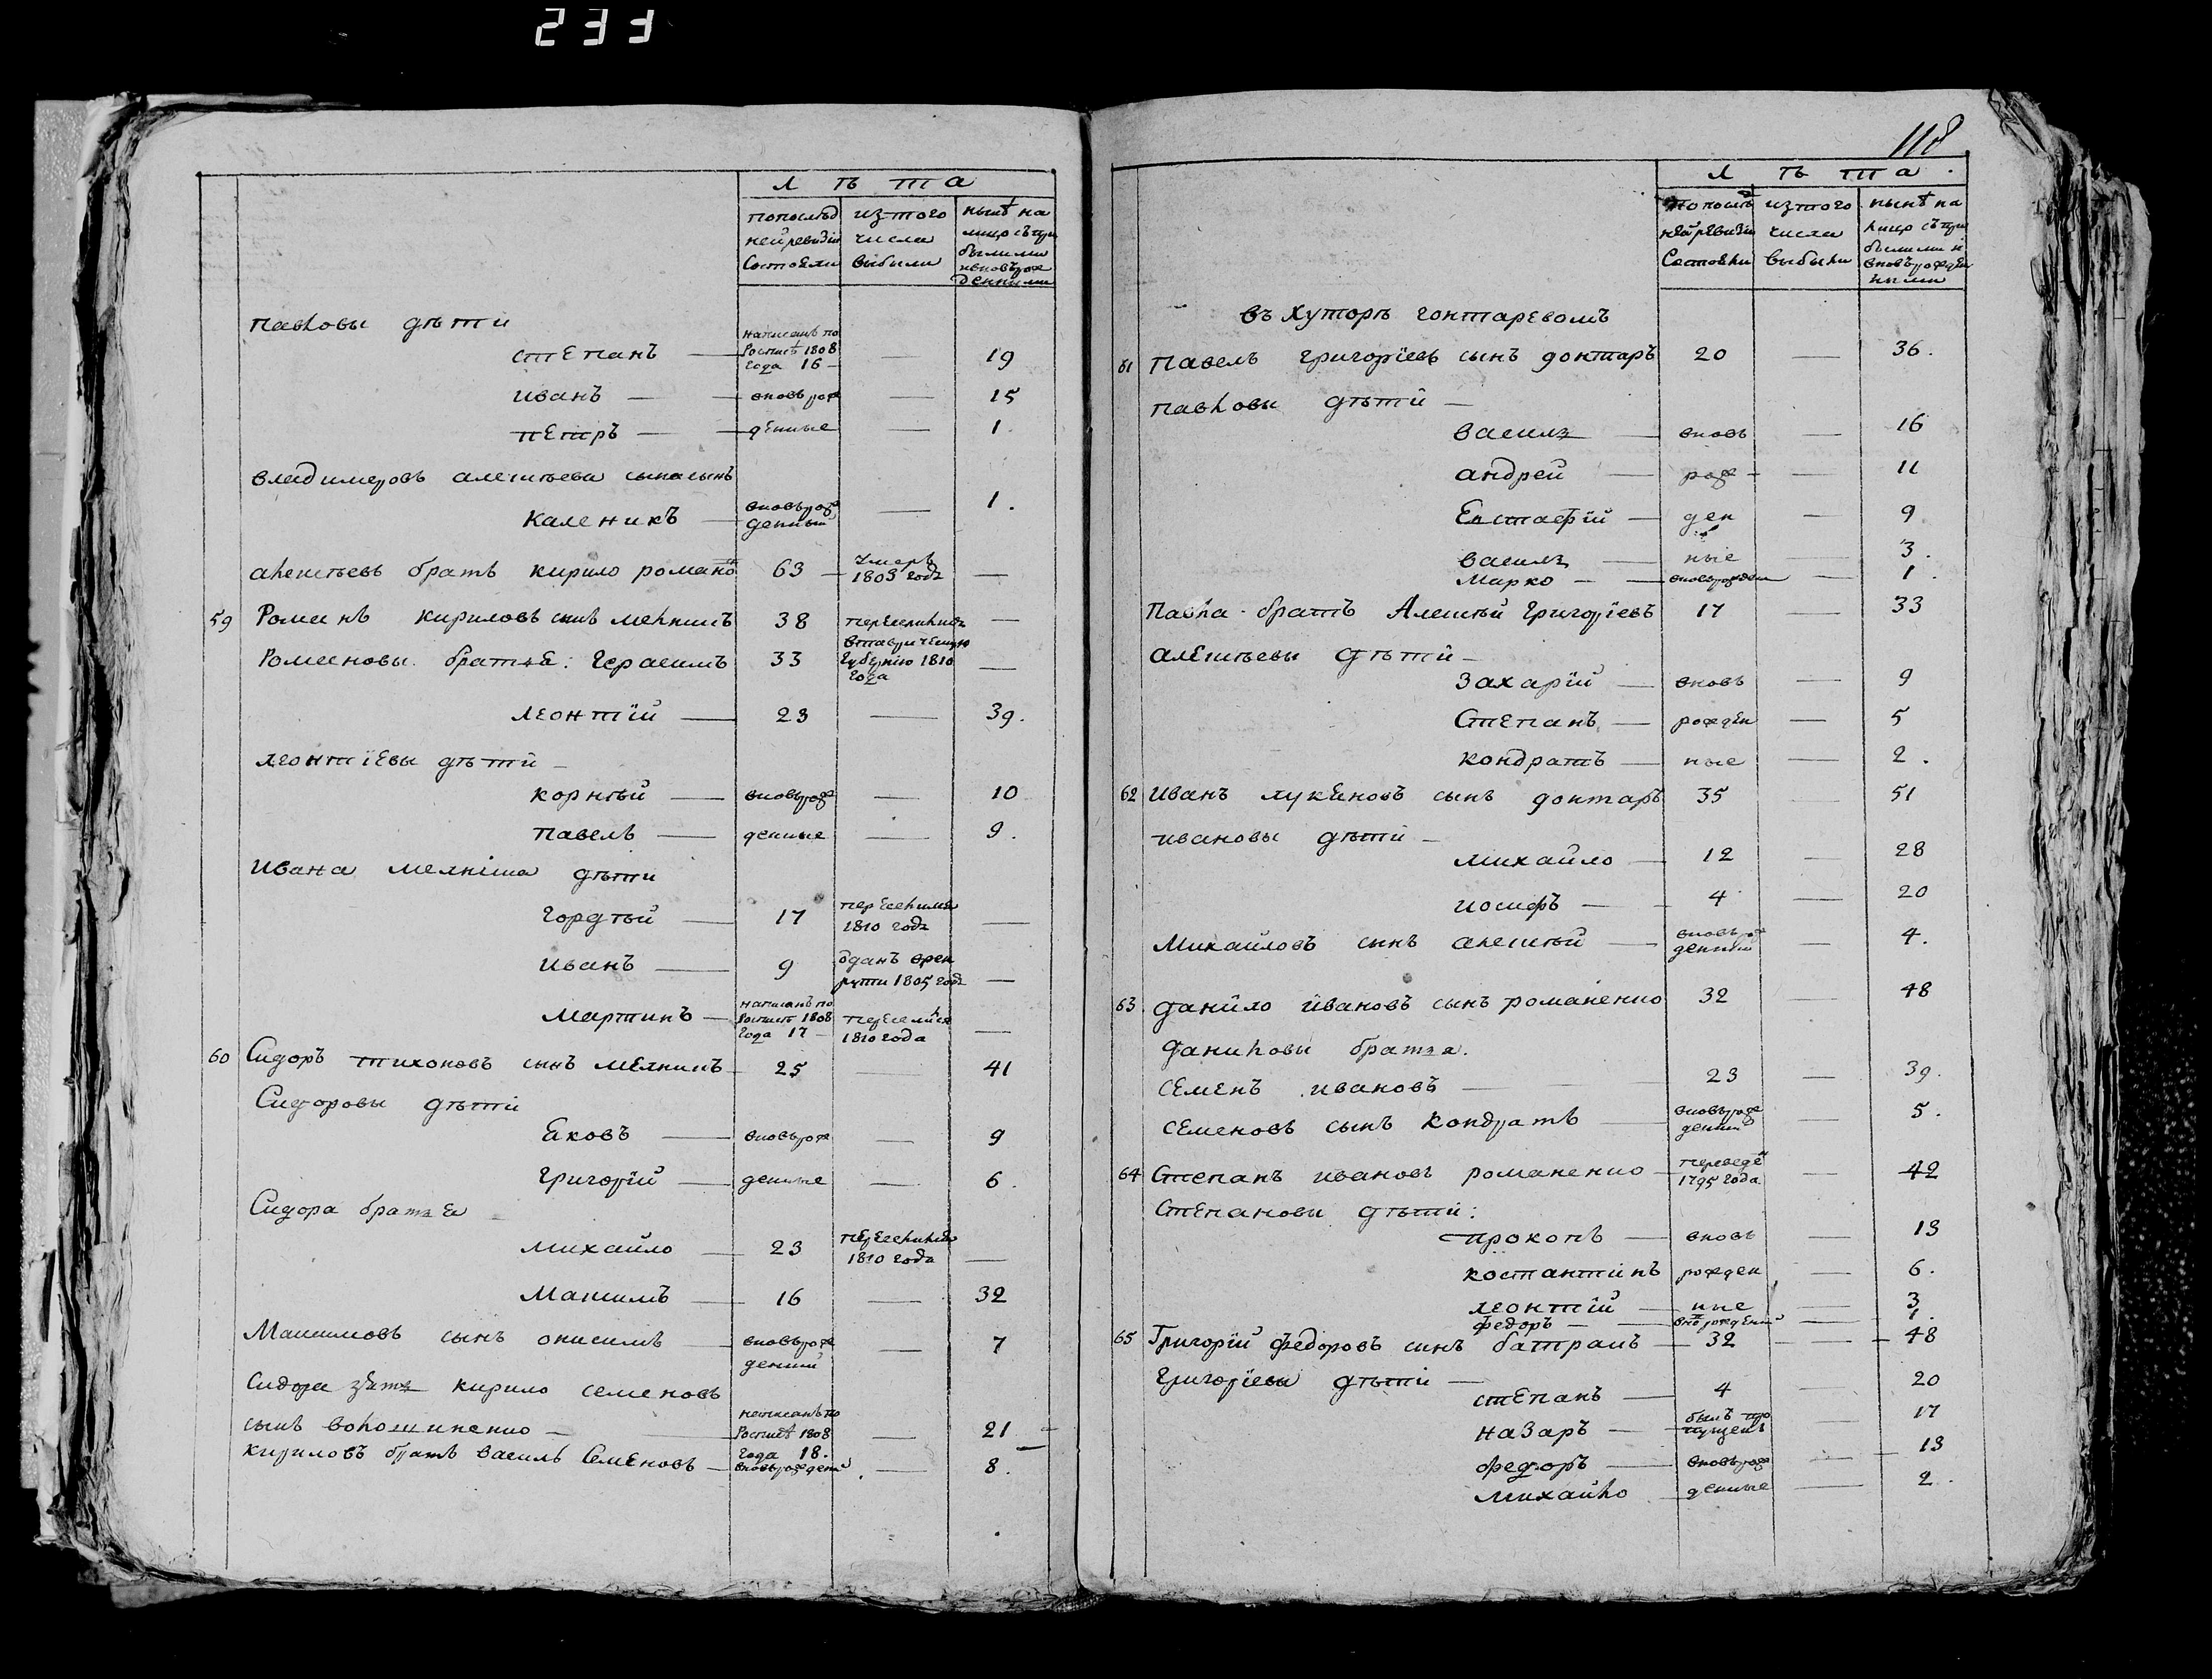 233
118
Л ѣ т а
попослѣд изтого нынѣ на
ней ревизіи числа лицо съ при
состояли выбыли былыми
ивновь рож
денными
павловы дѣти
написанъ по
степанъ — росписѣ 1808 — 19
года 16 —
иванъ — вновь рож — 15
петръ — денные — 1.
владимеровъ алексѣева сына сынъ
каленикъ — вновь рож — 1.
денный
алексѣевъ братъ кирило романо 63 — умеръ —
1803 годъ
59 Романъ кириловъ сынъ мельникъ 38 переселились —
втавричесную
Романовы братья: Герасимъ 33 Губернію 1810 —
года
леонтій — 23 — 39.
леонтіевы дѣти —
корнѣй — вновь рож — 10
павелъ — денные — 9.
Ивана мелника дѣти
гордѣй — 17 переселился —
1810 годъ
иванъ — 9 отданъ врек —
руты 1805 годъ
написанъ по
мартинъ — росписѣ 1808 переселился —
года 17 — 1810 года
60 Сидоръ тихоновъ сынъ мелникъ — 25 — 41
Сидоровы дѣти
Яковъ — вновь рож — 9
григорій — денные — 6.
Сидора братья —
михайло — 23 переселился —
1810 годъ
Максимъ — 16 — 32
Максимовъ сынъ онисимъ — вновь рож — 7
денный
Сидора зять кирило семеновъ
написанъ по
сынъ волошиненко — росписѣ 1808 — 21 —
года 18.
кириловъ братъ василь Семеновъ — вновь рожденъ — 8.
Л ѣ т а
попослѣд изтого нынѣ на
ней ревизіи числа лицо съ при
состояли выбыли былыми и
вновь рожден
ными
въ хуторѣ гонтаревомъ
61 павелъ григоріевъ сынъ донтаръ 20 — 36.
павловы дѣти —
василь — вновь — 16
андрей — рож — 11
Евстафій — ден — 9
василь — ные — 3.
марко — вновь рожден — 1.
Павла братъ Алексѣй Григоріевъ 17 — 33
алексѣевы дѣти —
захарій — вновь — 9
Степанъ — рожден — 5
кондратъ — ные — 2.
62 иванъ лукяновъ сынъ донтаръ 35 — 51
ивановы дѣти —
михайло — 12 — 28
иосифъ — 4 — 20
Михайловъ сынъ алексѣй — вновь рож — 4.
денный
63. данило ивановъ сынъ романенко 32 — 48
даниловы братья.
семенъ ивановъ — 23 — 39.
семеновъ сынъ кондратъ — вновь рож — 5.
денный
64 Степанъ ивановъ романенко — переведе — 42
1795 года
Степановы дѣти:
прокопъ — вновь — 13
костантинъ рожден — 6.
леонтій — ные — 3
федоръ — внорожденй — 1.
65 Григорій федоровъ сынъ батракъ — 32 — 48
Григоріевы дѣти —
степанъ — 4 — 20
назаръ — былъ про — 17
пущенъ
федоръ — вновь рож — 13
михайло денные — 2.